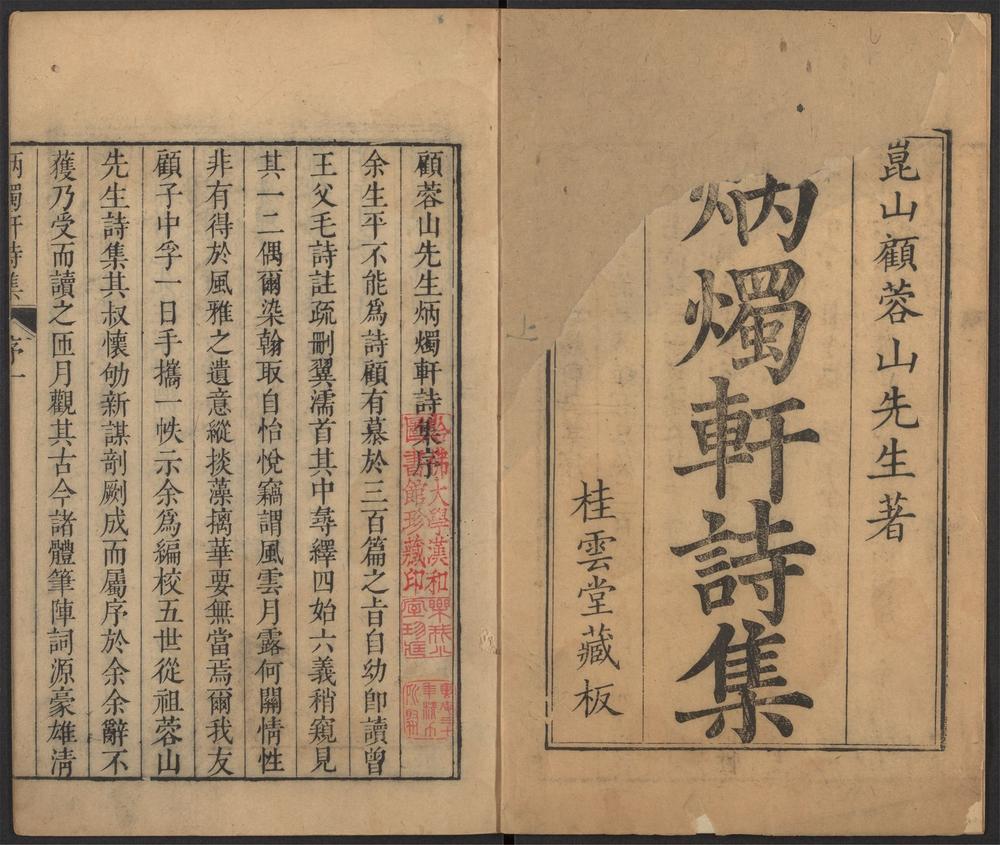 崑山顧蓉山先生著
炳燭軒詩集
桂雲堂藏板
上
顧蓉山先生炳燭軒詩集序
余生平不能爲詩顧有慕於三百篇之旨自幼卽讀曾
王父毛詩註疏刪翼濡首其中尋繹四始六義稍窺見
其一二偶爾染翰取自怡悅竊謂風雲月露何關情性
非有得於風雅之遺意縱掞藻摛華要無當焉爾我友
顧子中孚一日手攜一帙示余爲編校五世從祖蓉山
先生詩集其叔懷劬新謀剞劂成而屬序於余余辭不
獲乃受而讀之匝月觀其古今諸體筆陣詞源豪雄清
炳燭軒詩集 序 一
哈佛大學漢和圖書館珍藏印